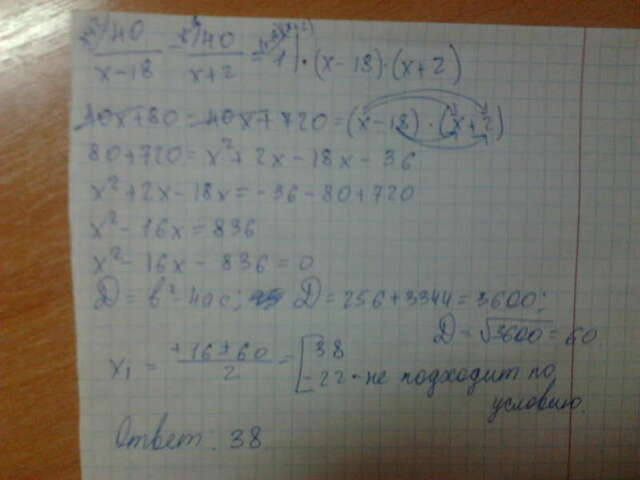 40/(x-18) - 40/(x+2) = 1 | · (x-18) · (x+2)
40x+80 = 40x+720 = (x-18) · (x+2)
80+720 = x²+2x-18x-36
x²+2x-18x = -36-80+720
x²-16x = 836
x²-16x-836 = 0
D = b²-4ac; D = 256+3344 = 3600;
D = √3600 = 60
x₁ = (+16±60)/2 = [38
-22 - не подходит по
условию.
Ответ: 38